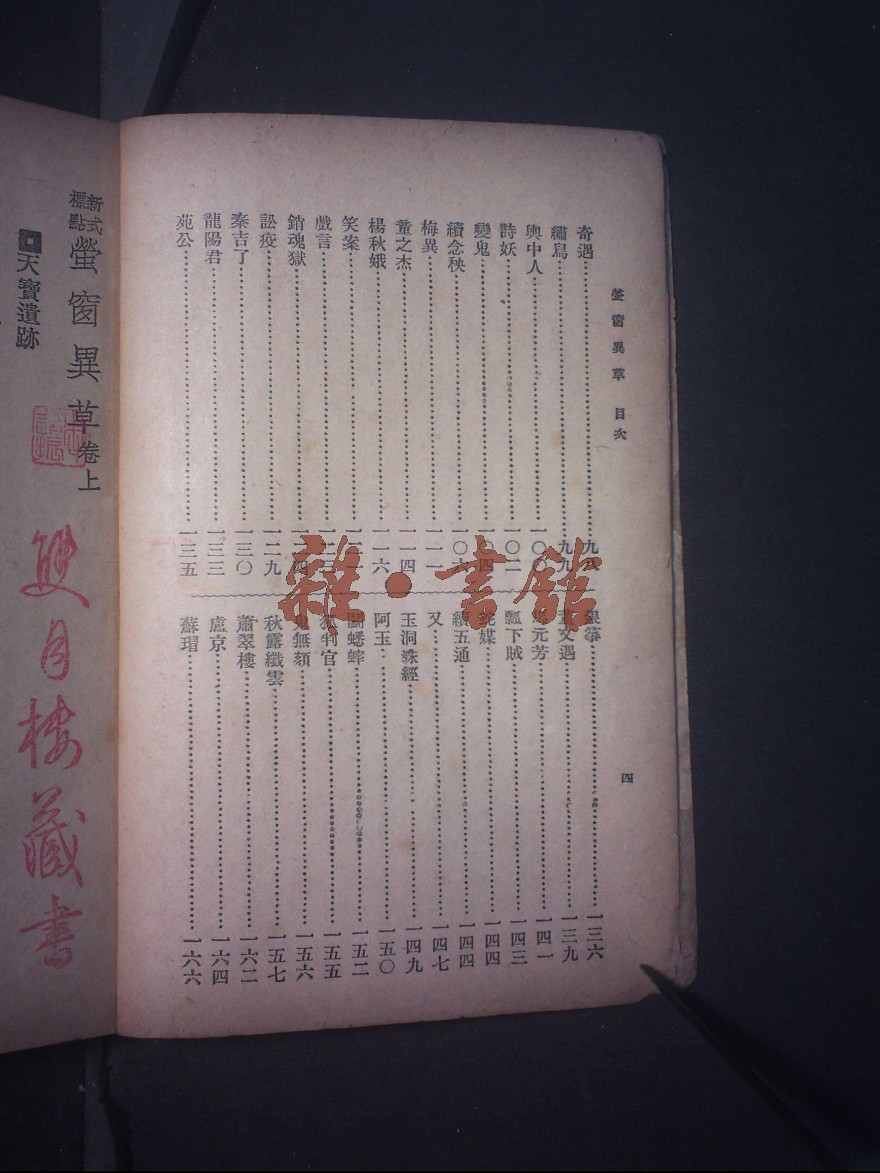 螢窗異草　目次
奇遇……九八
繡鳥……九九
輿中人……一〇〇
詩妖……一〇二
變鬼……一〇四
續念秧……一〇六
梅異……一一一
童之杰……一一四
楊秋娥……一一六
笑案……一二一
戲言……一二三
銷魂獄……一二四
訟疫……一二九
秦吉了……一三〇
龍陽君……一三三
苑公……一三五
……一三六
文遇……一三九
元芳……一四一
瓢下賊……一四三
媒……一四四
續五通……一四四
又……一四七
玉洞蛛經……一四九
阿玉……一五〇
鬭蟋蟀……一五二
狐判官……一五五
鬼無頦……一五六
秋露纖雲……一五七
蕭翠樓……一六二
盧京……一六四
蘇瑁……一六六
四
新式標點
螢窗異草卷上
天寶遺跡
雙月樓藏書
雜·書館